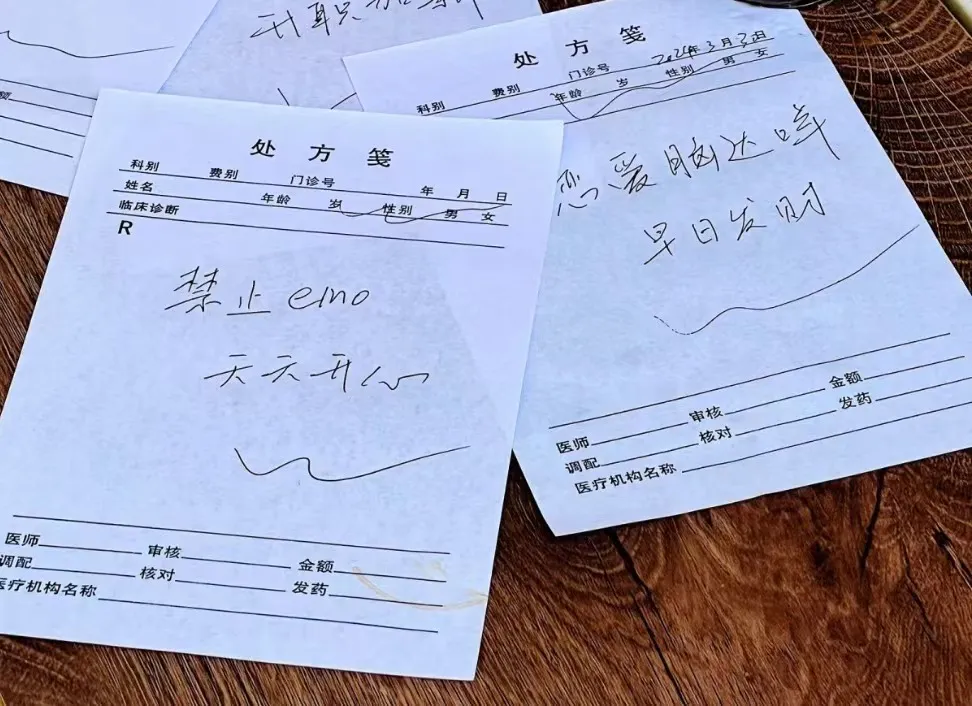 升职加薪
处方笺
科别 费别 门诊号 年 月 日
姓名 年龄 岁 性别 男 女
临床诊断
R
禁止emo
天天开心
医师 审核 金额
调配 核对 发药
医疗机构名称
处方笺
科别 费别 门诊号 2024年3月3日
年龄 岁 性别 男 女
恋爱脑达咩
早日发财
医师 审核 金额
调配 核对 发药
医疗机构名称
额